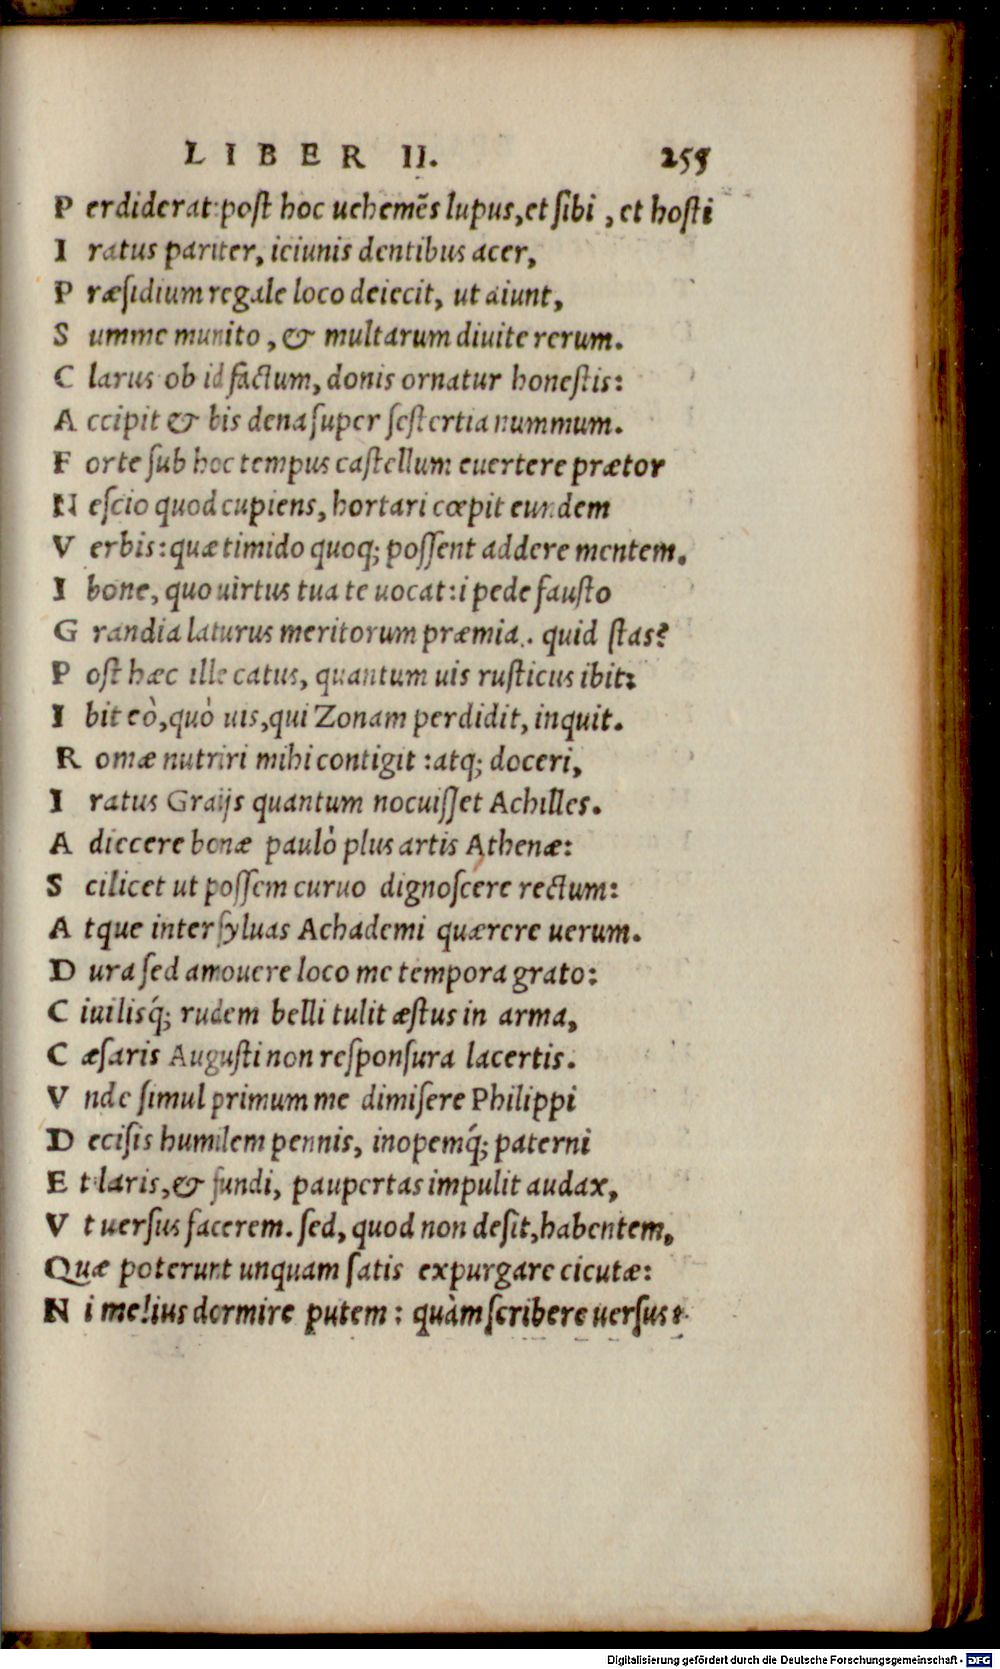 LIBER II. 255
P erdiderat: post hoc uehemẽs lupus, et sibi , et hosti
I ratus pariter, ieiunis dentibus acer,
P ræsidium regale loco deiecit, ut aiunt,
S umme munito , & multarum diuite rerum.
C larus ob id factum, donis ornatur honestis:
A ccipit & bis dena super sestertia nummum.
F orte sub hoc tempus castellum euertere prætor
N escio quod cupiens, hortari cœpit eundem
V erbis: quæ timido quoq; possent addere mentem.
I bone, quo uirtus tua te uocat: i pede fausto
G randia laturus meritorum præmia. quid stas?
P ost hæc ille catus, quantum uis rusticus ibit:
I bit eò, quò uis, qui Zonam perdidit, inquit.
R omæ nutriri mihi contigit : atq; doceri,
I ratus Graijs quantum nocuisset Achilles.
A diecere bonæ paulò plus artis Athenæ:
S cilicet ut possem curuo dignoscere rectum:
A tque inter syluas Achademi quærere uerum.
D ura sed amouere loco me tempora grato:
C iuilisq́; rudem belli tulit æstus in arma,
C æsaris Augusti non responsura lacertis.
V nde simul primum me dimisere Philippi
D ecisis humilem pennis, inopemq́; paterni
E t laris, & fundi, paupertas impulit audax,
V t uersus facerem. sed, quod non desit, habentem,
Quæ poterunt unquam satis expurgare cicutæ:
N i melius dormire putem : quàm scribere uersus?
Digitalisierung gefördert durch die Deutsche Forschungsgemeinschaft - DFG